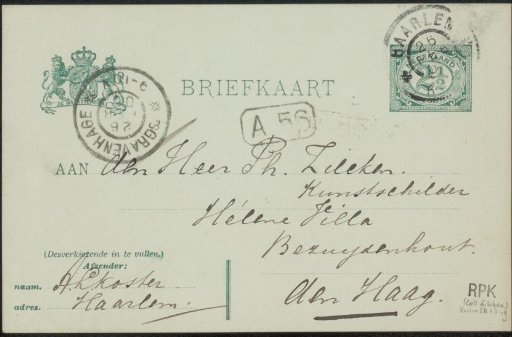 HAARLEM
26
NEDERLAND
2½
CENT
'SGRAVENHAGE
26
9-12
BRIEFKAART
A 56
AAN den Heer Ph. Zilcken.
Kunstschilder
Hélène Villa
Bezuydenhout.
den Haag.
(Desverkiezende in te vullen.)
Afzender:
naam. A.L. Koster
adres. Haarlem.
RPK
(Coll Zilcken)